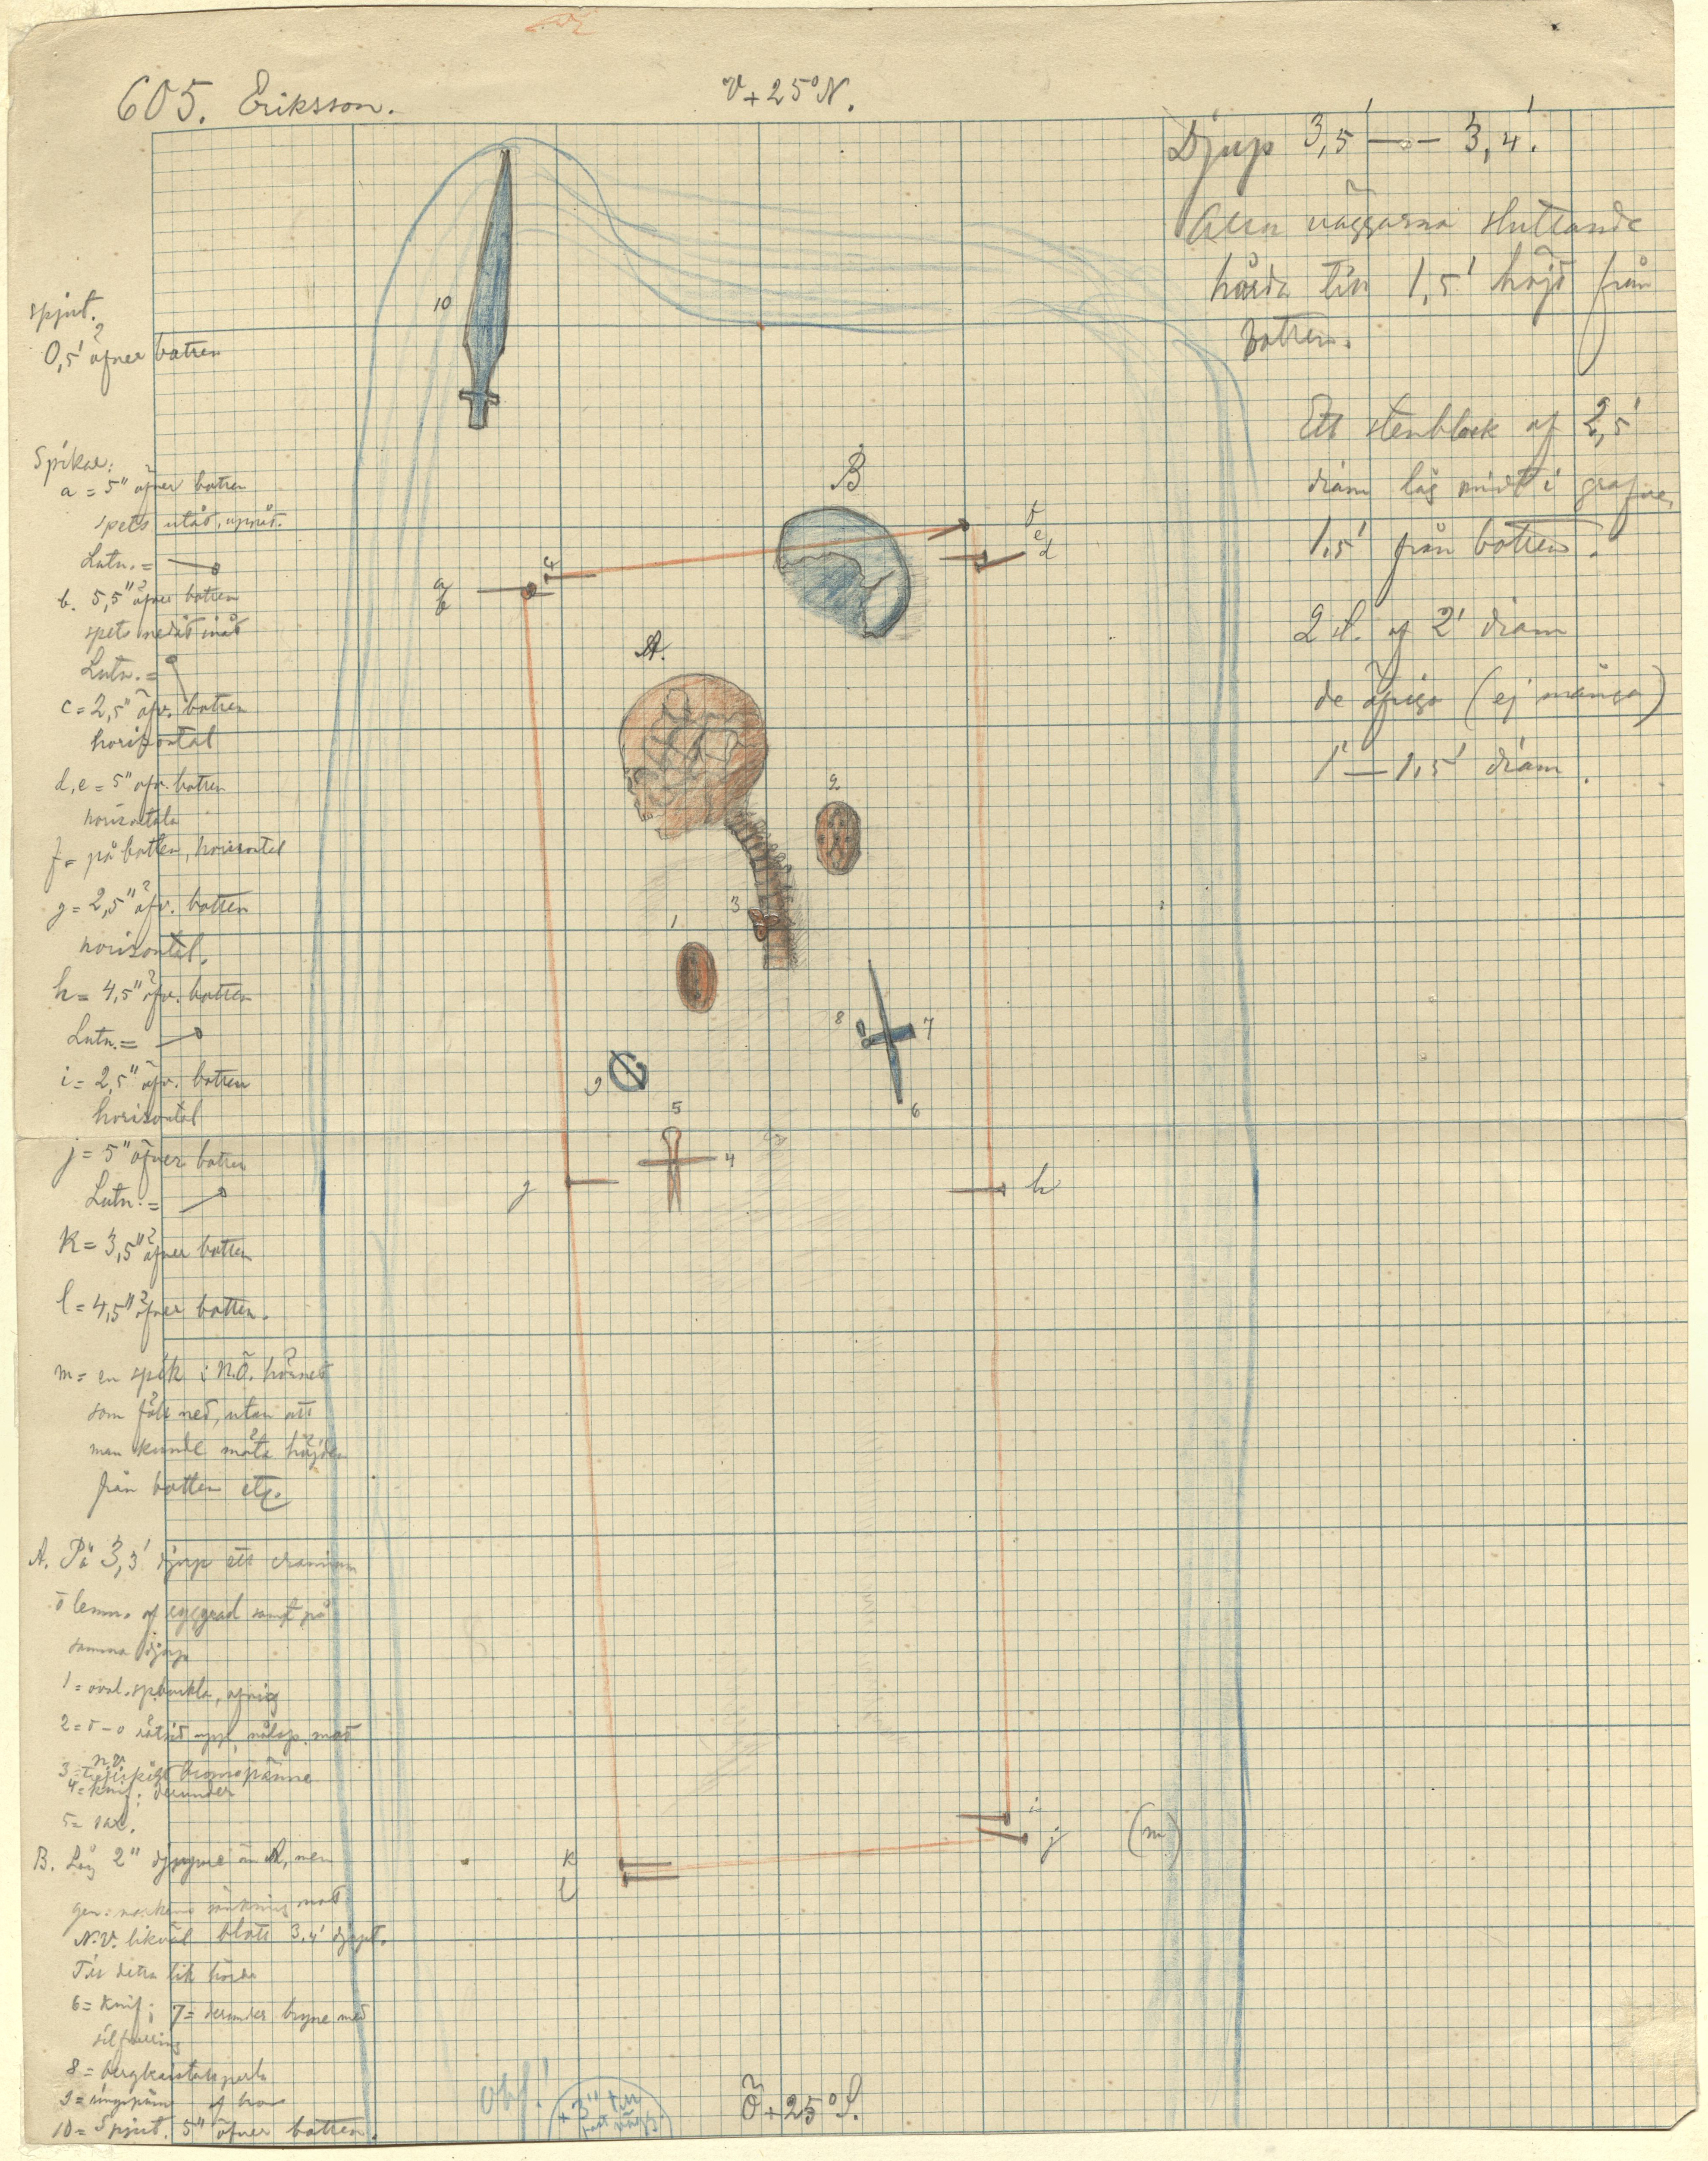 605. Eriksson.
V+25°N.
Djup 3,5' — 3,4'.
väggarna sluttande
hårda till 1,5' höjd från
botten.
Ett stenblock af 2,5'
diam låg midt i grafven
1,5' från botten.
2 st. af 2' diam
de öfriga (ej många)
1' — 1,5' diam.
spjut.
0,5' öfver botten
Spikar:
a = 5" öfver botten
spets utåt, uppåt.
Lutn. =
b. 5,5" öfver botten
spets nedåt inåt
Lutn. =
c = 2,5" öfv. botten
horizontal
d, e = 5" öfv. botten
horisontala
f = på botten, horisontel
g = 2,5" öfv. botten
horisontal.
h = 4,5" öfv. botten
Lutn. =
i = 2,5" öfv. botten
horisontal
j = 5" öfver botten
Lutn. =
K = 3,5" öfver botten
l = 4,5" öfver botten.
m = en spik i N.Ö. hörnet
som föll ned, utan att
man kunde mäta höjden
från botten etc.
A. På 3,3' djup ett cranium
o lemn. af ryggrad samt på
samma djup
1 = oval. spbuckla,
2 = d–o rätsid upp, nålsp. mot
n.v.
3 = bronspänne
4 = knif; derunder
5 = sax.
B. Låg 2" djupare än A, men
gen. markens sänkning mot
N.V. likväl blott 3,4' djupt.
Till detta lik hörde
6 = Knif; 7 = derunder bryne med
silfverring
8 = bergkristallsperla
9 = ringspänne af bro
10 = Spjut. 5" öfver botten.
10
B
a
b
c
f
e
d
A.
2
3
1
8
7
9
6
5
4
g
h
i
j
(m)
k
l
obs!
+3" till
Ö+25°S.